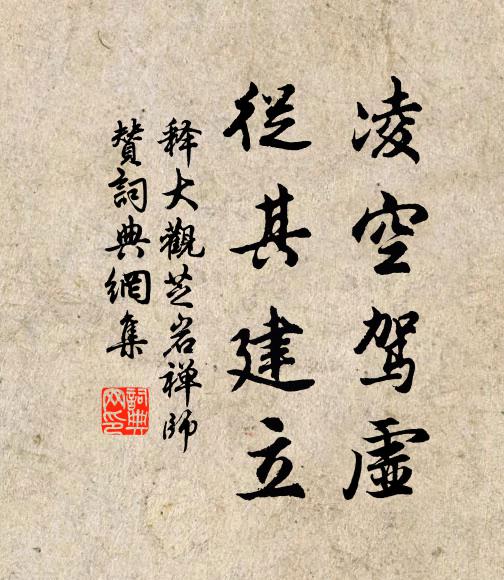 凌空駕虛
從其建立
释大觀芝岩禅師
贊詞典網集
詞典
网印